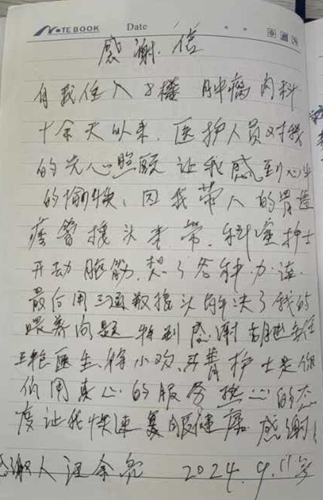 NOTE BOOK Date
感谢信
自我住入8楼肿瘤内科
十余天以来,医护人员对我
的关心照顾让我感到心里
的愉快,因我带入的胃造
瘘管接头未带,科室护士
开动脑筋,想了各种办法
最后用三通教接头解决了我的
喂养问题特别感谢胡 主任
王艳医生、蒋小欢、 护士是你
们用真心的服务 心的态
度让我快速复的健康 感谢!
感谢人汪金 2024.9.11